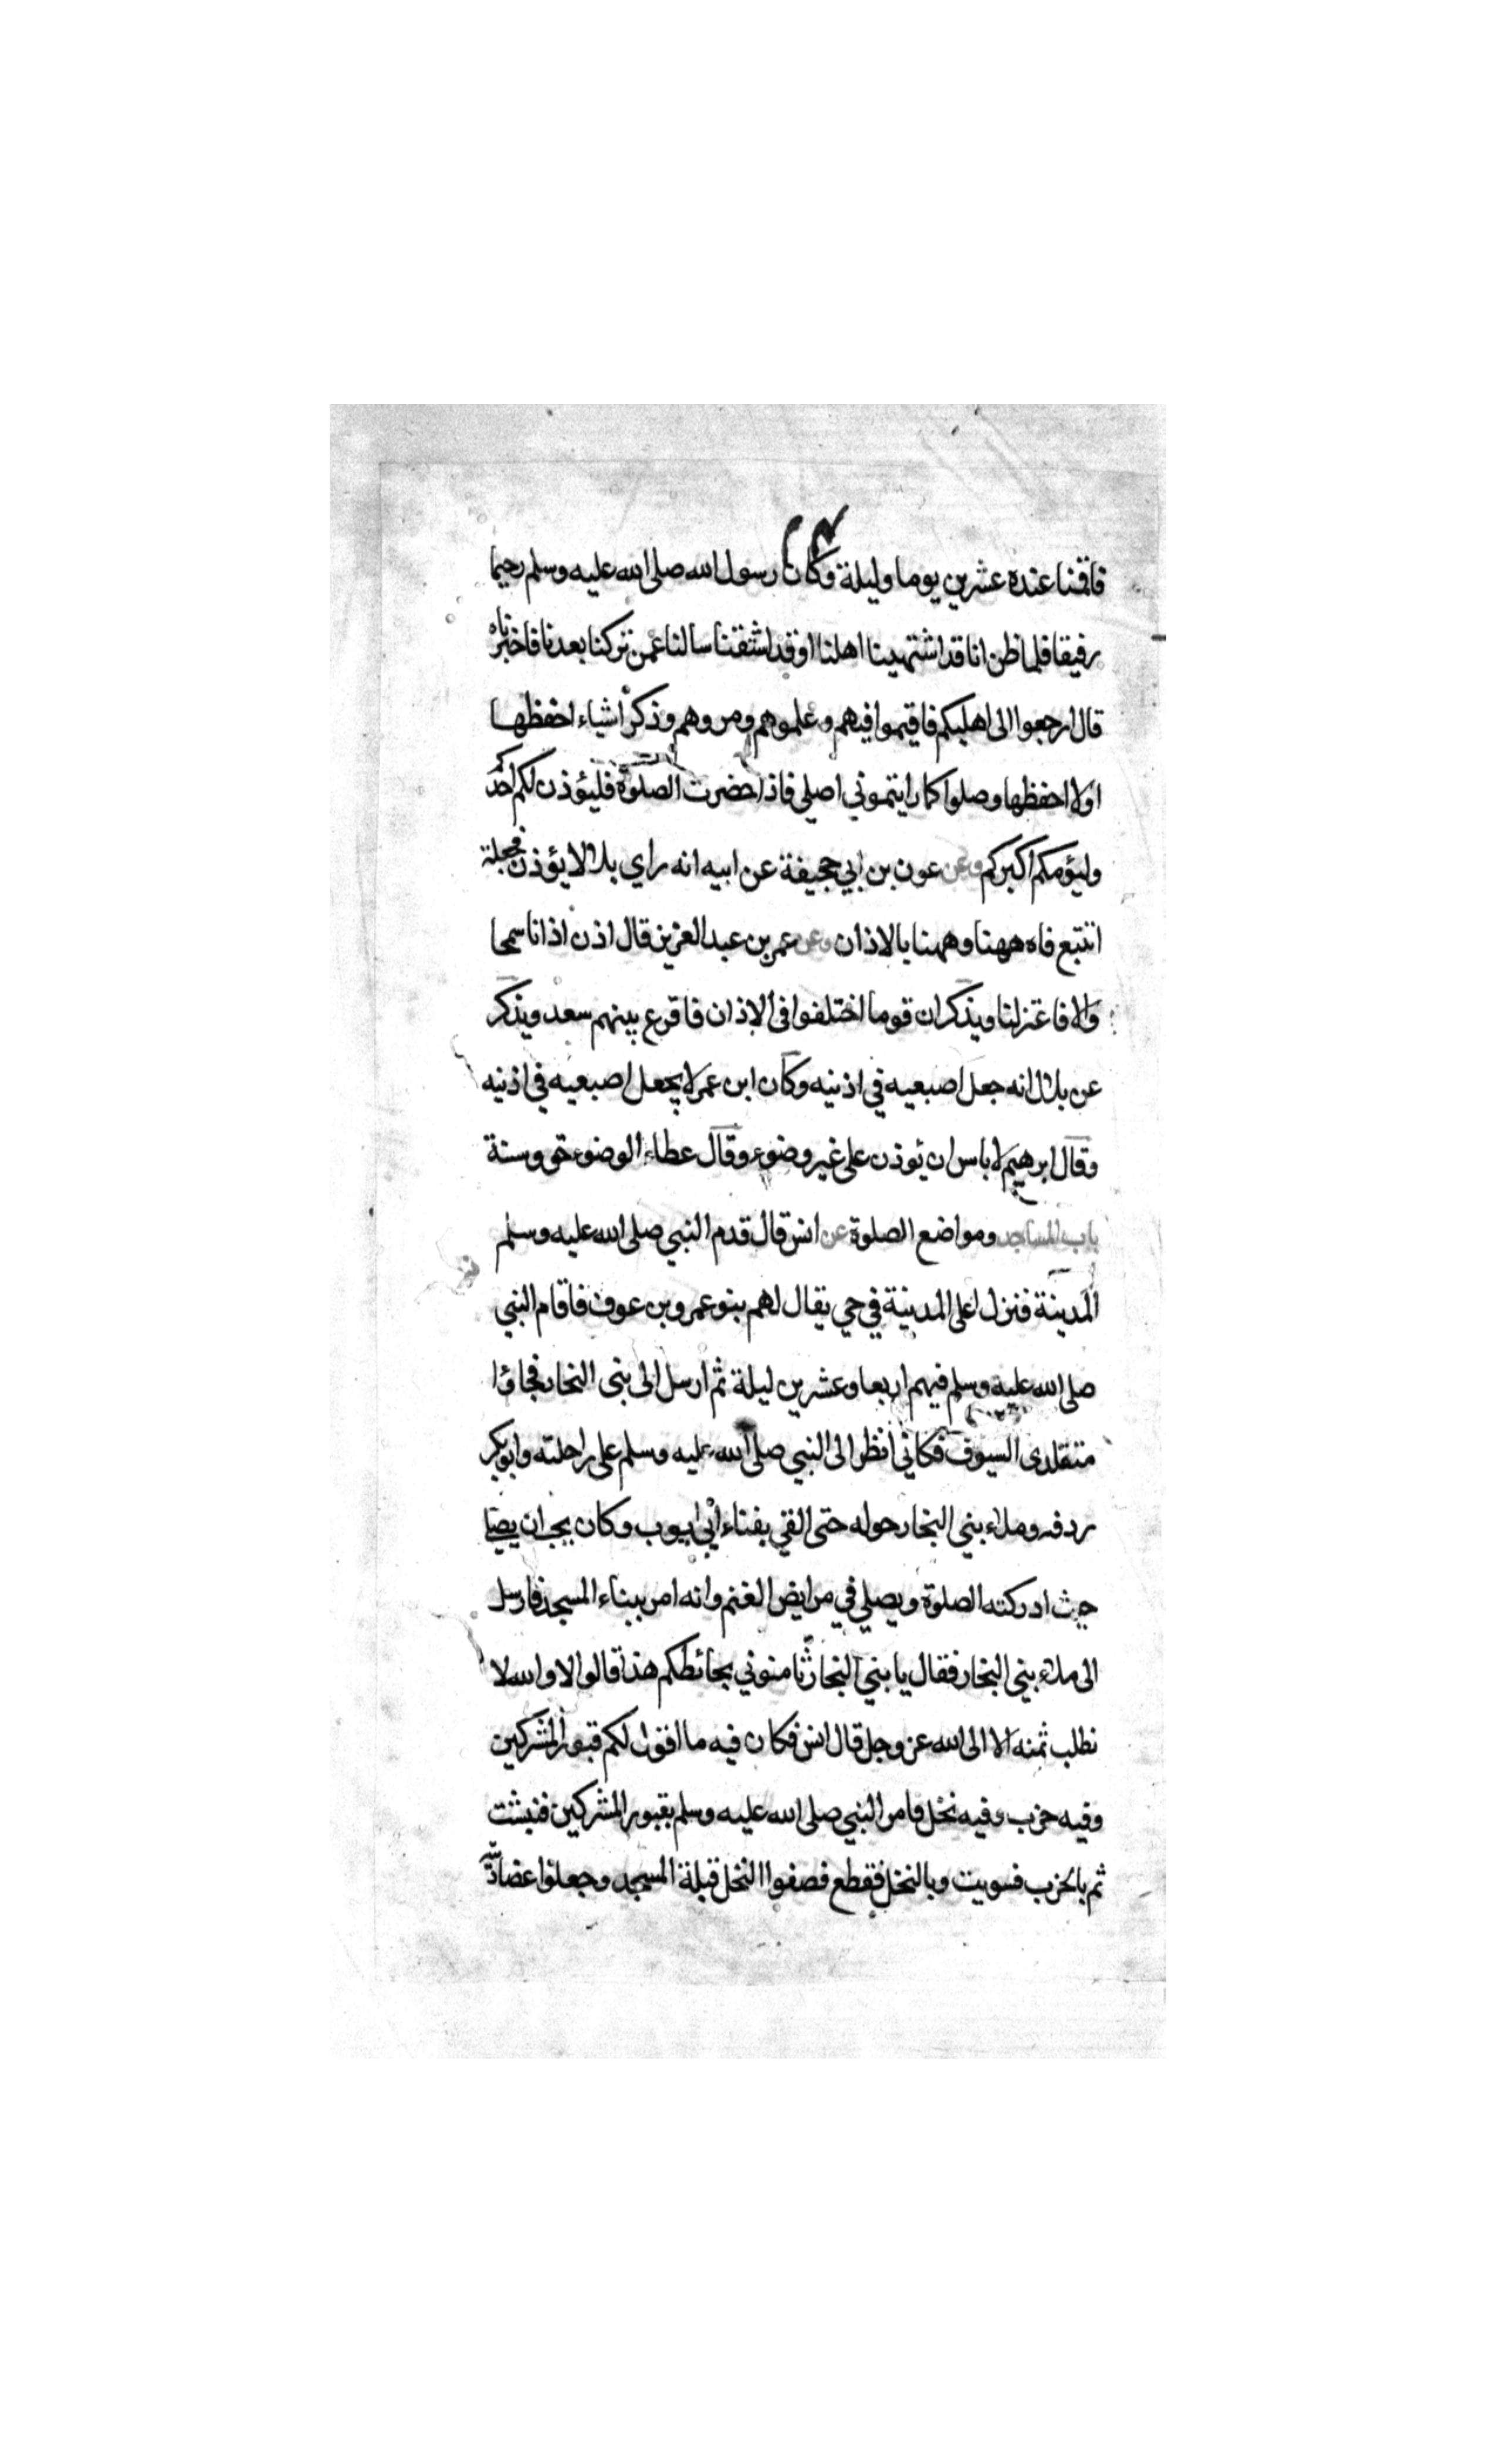 فاقمنا عنده عشرين يوما وليلة وكان رسول الله صلى الله عليه وسلم رحيما
رفيقا فلما ظن انا قد اشتهينا اهلنا او قد اشتقنا سالنا عمن تركنا بعدنا فاخبرناه
قال ارجعوا الى اهليكم فاقيموا فيهم وعلموهم ومروهم وذكر اشياء احفظها
او لا احفظها وصلوا كما رايتموني اصلي فاذا حضرت الصلوة فليؤذن لكم احدكم
وليؤمكم اكبركم وعن عون بن ابي جحيفة عن ابيه انه راي بلالا يؤذن فجعلت
اتتبع فاه ههنا وههنا بالاذان وعن عمر بن عبد العزيز قال اذن اذانا سمحا
والا فاعتزلنا ويذكر ان قوما اختلفوا في الاذان فاقرع بينهم سعد ويذكر
عن بلال انه جعل اصبعيه في اذنيه وكان ابن عمر لا يجعل اصبعيه في اذنيه
وقال ابرهيم لا باس ان يؤذن على غير وضوء وقال عطاء الوضوء حق وسنة
باب المساجد ومواضع الصلوة عن انس قال قدم النبي صلى الله عليه وسلم
المدينة فنزل اعلى المدينة في حي يقال لهم بنو عمرو بن عوف فاقام النبي
صلى الله عليه وسلم فيهم اربعا وعشرين ليلة ثم ارسل الى بني النجار فجاؤا
متقلدى السيوف فكاني انظر الى النبي صلى الله عليه وسلم على راحلته وابو بكر
ردفه وملاء بني النجار حوله حتى القي بفناء ابي ايوب وكان يحب ان يصلي
حيث ادركته الصلوة ويصلي في مرابض الغنم وانه امر ببناء المسجد فارسل
الى ملاء بني النجار فقال يا بني النجار ثامنوني بحائطكم هذا قالوا لا والله لا
نطلب ثمنه الا الى الله عز وجل قال انس فكان فيه ما اقول لكم قبور المشركين
وفيه خرب وفيه نخل فامر النبي صلى الله عليه وسلم بقبور المشركين فنبشت
ثم بالخرب فسويت وبالنخل فقطع فصفوا النخل قبلة المسجد وجعلوا عضادتيه